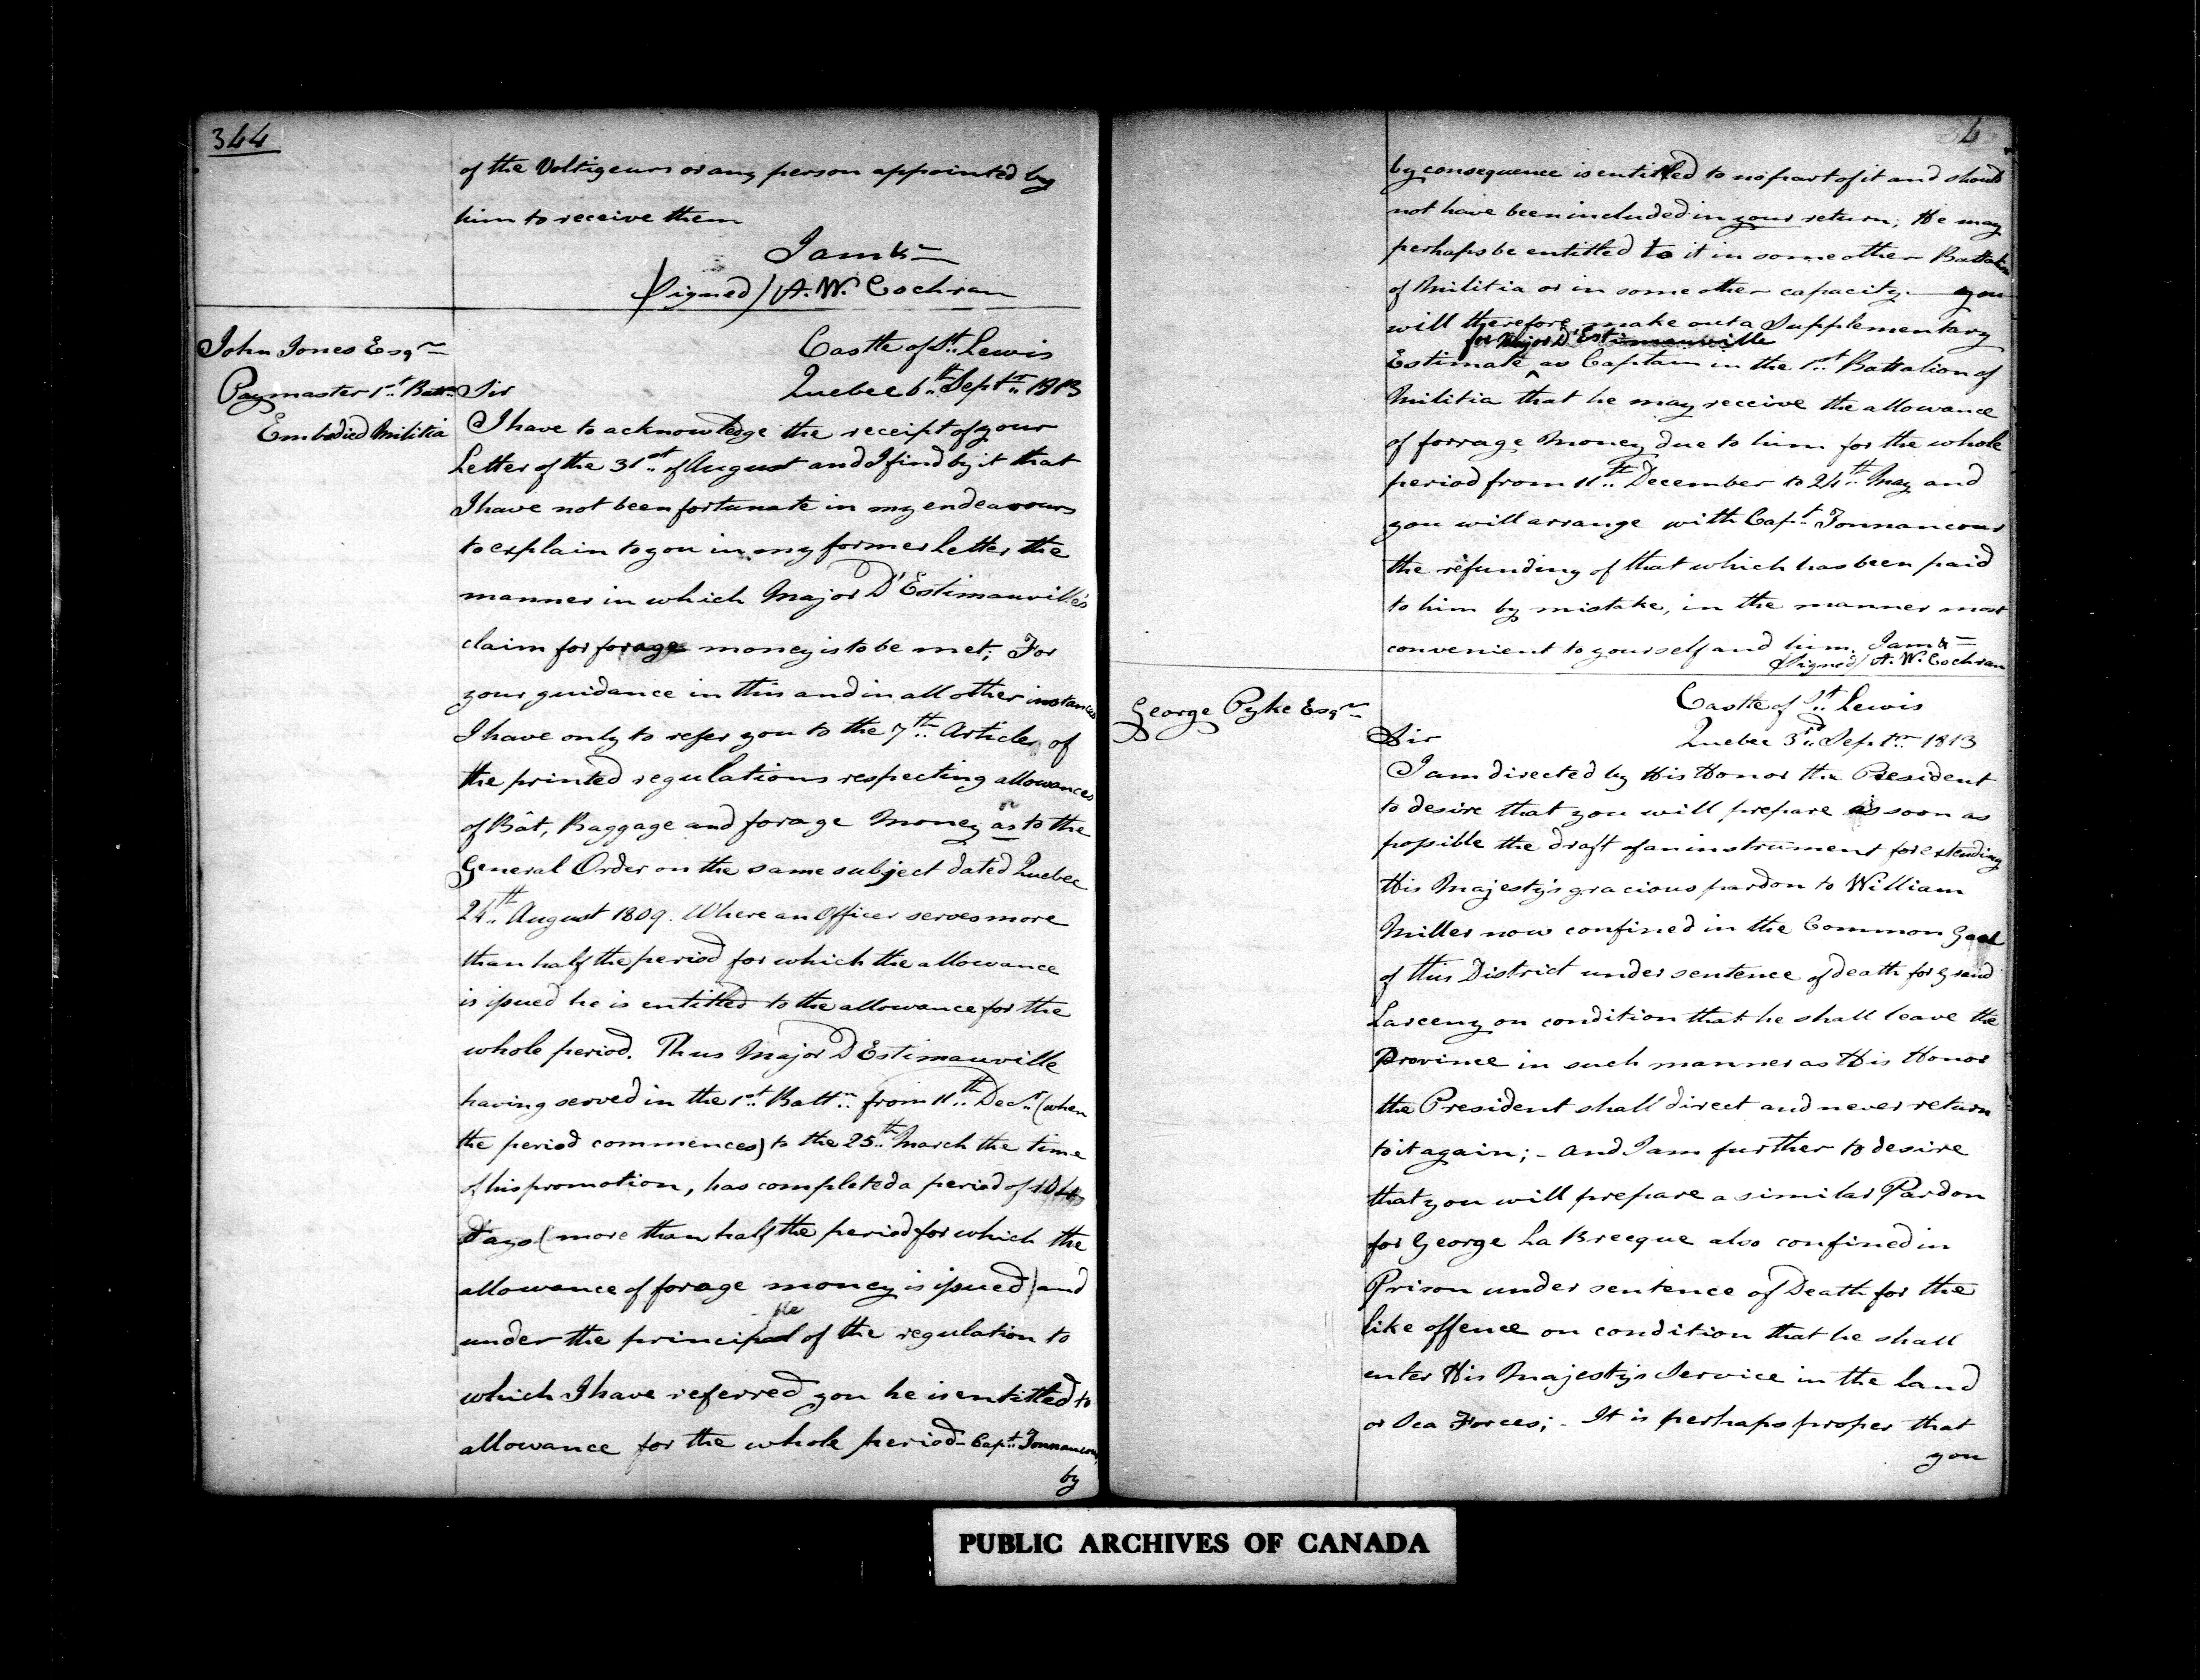 344
of the Voltigeurs or any person appointed by
him to receive them
I am &c
(Signed) A. W. Cochran
John Jones Esqr
Paymaster 1st Battn
Embodied Militia
Castle of St. Lewis
Quebec 6th Septr 1813
Sir
I have to acknowledge the receipt of your
Letter of the 31st of August and I find by it that
I have not been fortunate in my endeavours
to explain to you in my former Letter the
manner in which Major D'Estimauville's
claim for forage money is to be met; For
your guidance in this and in all other instances
I have only to refer you to the 7th Article of
the printed regulations respecting allowances
of Bât, Baggage and forage Money as to the
General Order on the same subject dated Quebec
24th August 1809. Where an Officer serves more
than half the period for which the allowance
is issued he is entitled to the allowance for the
whole period. Thus Major D'Estimauville
having served in the 1st Battn from 11th Decr (when
the period commences) to the 25th March the time
of his promotion, has completed a period of 104
Days (more than half the period for which the
allowance of forage money is issued) and
under the principle of the regulation to
which I have referred you he is entitled to
allowance for the whole period - Capt. Tonnancour,
by
by consequence is entitled to no part of it and should
not have been included in your return; He may
perhaps be entitled to it in some other Battalion
of Militia or in some other capacity. — you
will therefore make out a Supplementary
for Major D'Estimauville
Estimate ^ as Captain in the 1st Battalion of
Militia that he may receive the allowance
of forrage Money due to him for the whole
period from 11th December to 24th May and
you will arrange with Capt Tonnancour
the refunding of that which has been paid
to him by mistake, in the manner most
convenient to yourself and him. I am &c
(Signed) A. W. Cochran
George Pyke Esqr
Castle of St. Lewis
Quebec 3rd Septr 1813
Sir
I am directed by His Honor the President
to desire that you will prepare as soon as
possible the draft of an instrument for extending
His Majesty's gracious pardon to William
Miller now confined in the Common Gaol
of this District under sentence of death for grand
Larceny on condition that he shall leave the
Province in such manner as His Honor
the President shall direct and never return
to it again; - and I am further to desire
that you will prepare a similar Pardon
for George La Brecque also confined in
Prison under sentence of Death for the
like offence on condition that he shall
enter His Majesty's Service in the Land
or Sea Forces; - It is perhaps proper that
you
PUBLIC ARCHIVES OF CANADA